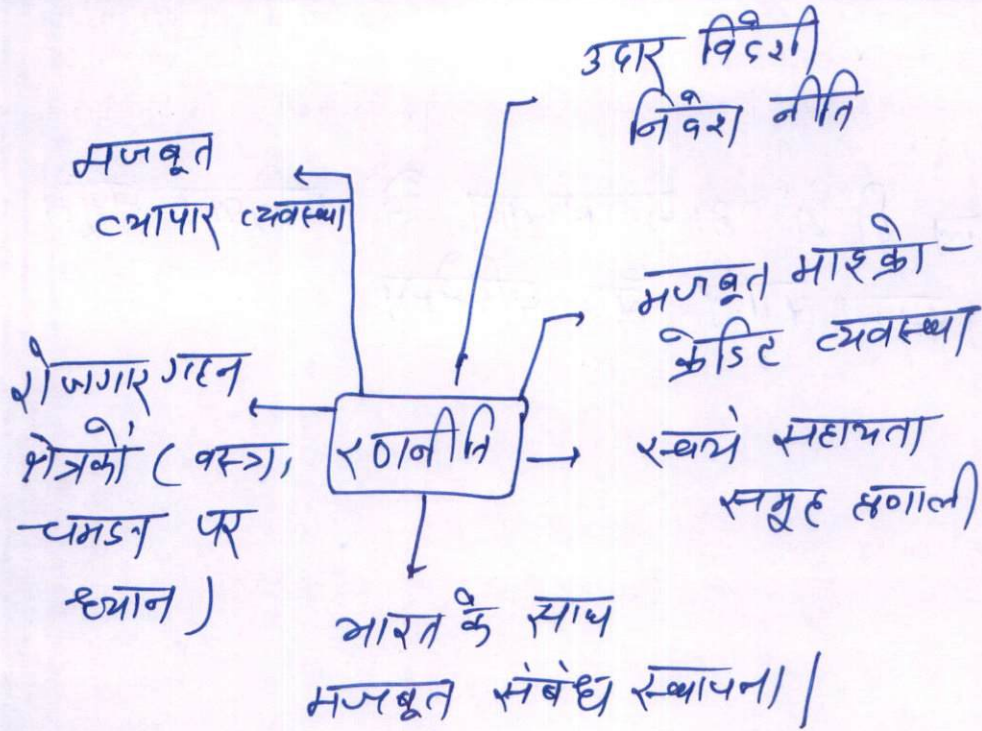 उदार विदेशी
निवेश नीति
मजबूत
व्यापार व्यवस्था
मजबूत माइक्रो -
क्रेडिट व्यवस्था
रोजगार गहन
क्षेत्रकों ( वस्त्र,
चमड़ा पर
ध्यान )
रणनीति
स्वयं सहायता
समूह प्रणाली
भारत के साथ
मजबूत संबंध स्थापना |